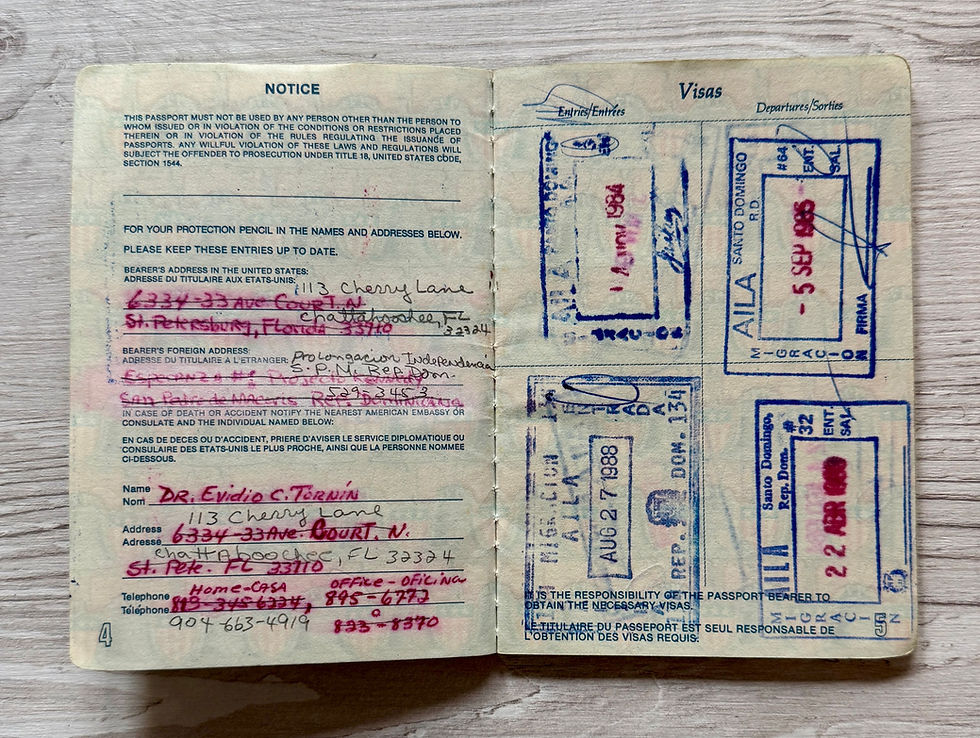 NOTICE
THIS PASSPORT MUST NOT BE USED BY ANY PERSON OTHER THAN THE PERSON TO
WHOM ISSUED OR IN VIOLATION OF THE CONDITIONS OR RESTRICTIONS PLACED
THEREIN OR IN VIOLATION OF THE RULES REGULATING THE ISSUANCE OF
PASSPORTS. ANY WILLFUL VIOLATION OF THESE LAWS AND REGULATIONS WILL
SUBJECT THE OFFENDER TO PROSECUTION UNDER TITLE 18, UNITED STATES CODE,
SECTION 1544.
FOR YOUR PROTECTION PENCIL IN THE NAMES AND ADDRESSES BELOW.
PLEASE KEEP THESE ENTRIES UP TO DATE.
BEARER'S ADDRESS IN THE UNITED STATES:
ADRESSE DU TITULAIRE AUX ETATS-UNIS:
113 Cherry Lane
6334-33 Ave Court N.
Chattahoochee, FL
St. Petersburg, Florida 33710
32324
BEARER'S FOREIGN ADDRESS:
ADRESSE DU TITULAIRE A L'ETRANGER:
Prolongacion Independencia
S. P. M. Rep. Dom.
Esperanza #8 Projecto Kennedy
529-3453
San Pedro de Macoris Rep. Dominicana
IN CASE OF DEATH OR ACCIDENT NOTIFY THE NEAREST AMERICAN EMBASSY OR
CONSULATE AND THE INDIVIDUAL NAMED BELOW:
EN CAS DE DECES OU D'ACCIDENT, PRIERE D'AVISER LE SERVICE DIPLOMATIQUE OU
CONSULAIRE DES ETATS-UNIS LE PLUS PROCHE, AINSI QUE LA PERSONNE NOMMEE
CI-DESSOUS.
Name
Nom
DR. Evidio C. Turnín
113 Cherry Lane
Address
Adresse
6334-33 Ave. Court. N.
Chattahoochee, FL 32324
St. Pete. FL 33710
Home-Casa
OFFICE-OFICINA
Telephone
Téléphone
895-6772
904-663-4919
823-8370
4
Visas
Entries/Entrées
Departures/Sorties
AILA
14 NOV 1984
MIGRACION
AILA
SANTO DOMINGO
R.D.
#64
ENT.
SAL.
- 5 SEP 1985
FIRMA
MIGRACION
ENTRADA
MIGRACION
AILA
AUG 27 1988
REP. DOM. 134
AILA
Santo Domingo,
Rep. Dom.
# 32
ENT.
SAL.
22 ABR
MIGRACION
IT IS THE RESPONSIBILITY OF THE PASSPORT BEARER TO
OBTAIN THE NECESSARY VISAS.
LE TITULAIRE DU PASSEPORT EST SEUL RESPONSABLE DE
L'OBTENTION DES VISAS REQUIS.
5